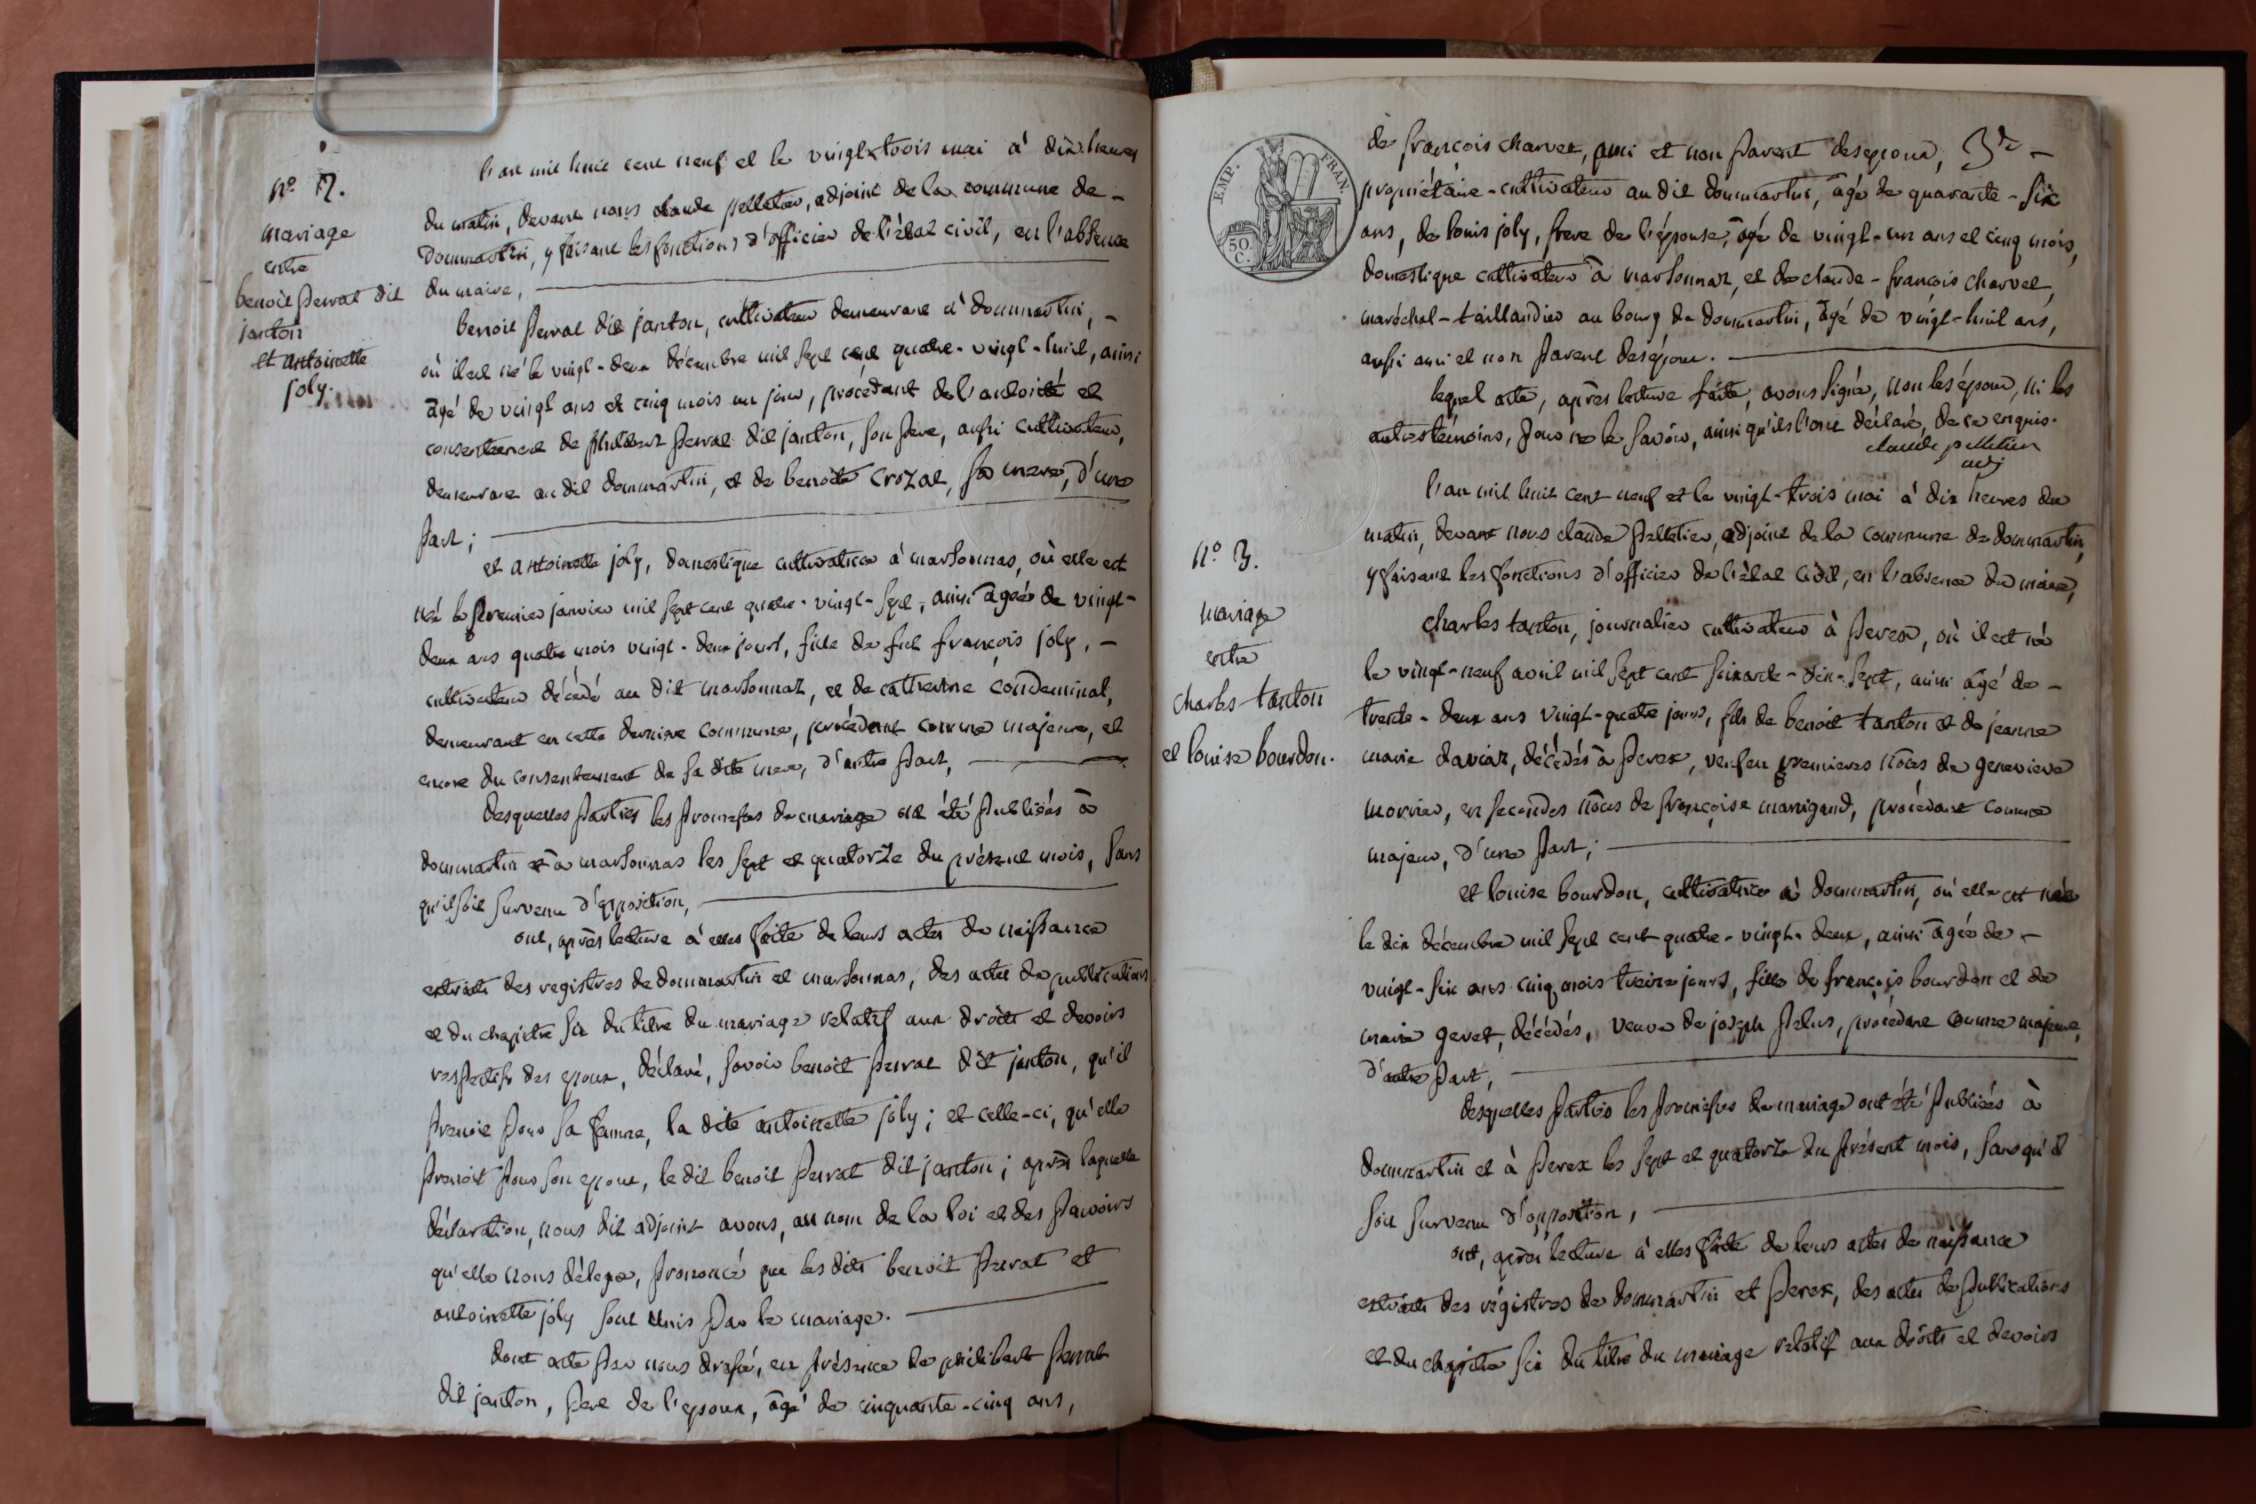 nº 2.
mariage
entre
benoit perrat dit
janton
et antoinette
joly.
l'an mil huit cent neuf et le vingt-trois mai à dix heures
du matin, devant nous claude pelletier, adjoint de la commune de -
dommartin, y faisant les fonctions d'officier de l'état civil, en l'absence
du maire,
benoit perrat dit janton, cultivateur demeurant à dommartin, -
où il est né le vingt-deux décembre mil sept cent quatre-vingt-huit, ainsi
âgé de vingt ans et cinq mois un jour, procédant de l'autorité et
consentement de philibert perrat dit janton, son père, aussi cultivateur,
demeurant au dit dommartin, et de benoite crozat, sa mere, d'une
part;
et antoinette joly, domestique cultivatrice à marsonnas, où elle est
née le premier janvier mil sept cent quatre-vingt-sept, ainsi âgée de vingt-
deux ans quatre mois vingt-deux jours, fille de feu françois joly, -
cultivateur décédé au dit marsonnaz, et de catherine condeminal,
demeurant en cette derniere commune, procédant comme majeure, et
encore du consentement de sa dite mere, d'autre part,
desquelles parties les promesses de mariage ont été publiées à
dommartin et à marsonnas les sept et quatorze du présent mois, sans
qu'il soit survenu d'opposition,
ont, après lecture à elles faite de leurs actes de naissance
extraits des registres de dommartin et marsonnas, des actes de publications
et du chapitre six du titre du mariage relatif aux droits et devoirs
respectifs des epoux, déclaré, savoir benoit perrat dit janton, qu'il
prenoit pour sa femme, la dite antoinette joly; et celle-ci, qu'elle
prenoit pour son epoux, le dit benoit perrat dit janton; après laquelle
déclaration, nous dit adjoint avons, au nom de la loi et des pouvoirs
qu'elle nous délegue, prononcé que les dits benoit perrat et
antoinette joly sont unis par le mariage.
dont acte par nous dressé, en présence de philibert perrat
dit janton, pere de l'epoux, âgé de cinquante-cinq ans,
EMP. FRAN.
50.
C.
de françois charvet, ami et non parent desepoux,
propriétaire-cultivateur au dit dommartin, âgé de quarante-six
ans, de louis joly, frere de l'épouse, âgé de vingt-un ans et cinq mois,
domestique cultivateur à marsonnaz, et de claude-françois charvet,
maréchal-taillandier au bourg de dommartin, âgé de vingt-huit ans,
aussi ami et non parent desépoux.
lequel acte, après lecture faite, avons signé, non les époux, ni les
autres témoins, pour ne le savoir, ainsi qu'ils l'ont déclaré, de ce enquis.
claude pelletier
adj
nº 3.
mariage
entre
charles tanton
et louise bourdon.
l'an mil huit cent neuf et le vingt-trois mai à dix heures du
matin, devant nous claude pelletier, adjoint de la commune de dommartin,
y faisant les fonctions d'officier de l'état civil, en l'absence du maire,
charles tanton, journalier cultivateur à perex, où il est né
le vingt-neuf avril mil sept cent soixante-dix-sept, ainsi âgé de -
trente-deux ans vingt-quatre jours, fils de benoit tanton et de jeanne
marie daviaz, décédés à perex, veuf en premieres nôces de genevieve
morrier, en secondes nôces de françoise marigand, procédant comme
majeur, d'une part;
et louise bourdon, cultivatrice à dommartin, où elle est née
le dix décembre mil sept cent quatre-vingt-deux, ainsi âgée de -
vingt-six ans cinq mois treize jours, fille de françois bourdon et de
marie gevet, décédés, veuve de joseph pelus, procédant comme majeure,
d'autre part,
desquelles parties les promesses de mariage ont été publiées à
dommartin et à perex les sept et quatorze du présent mois, sans qu'il
soit survenu d'opposition,
ont, après lecture à elles faite de leurs actes de naissance
extraits des régistres de dommartin et perex, des actes de publications
et du chapitre six du titre du mariage relatif aux droits et devoirs